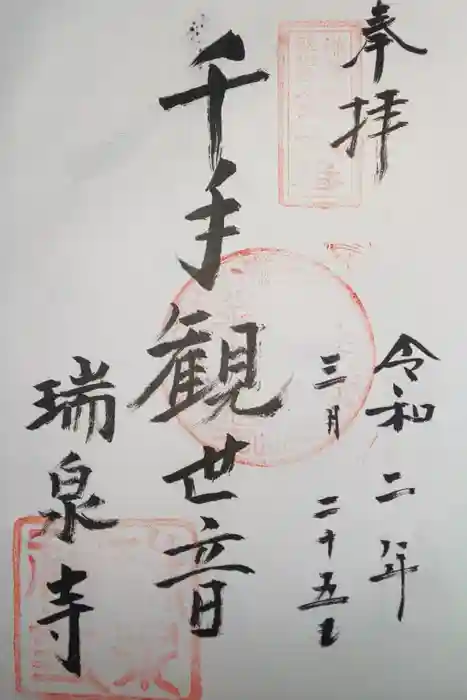 奉拝
令和二年
三月二十五日
千手観世音
瑞泉寺